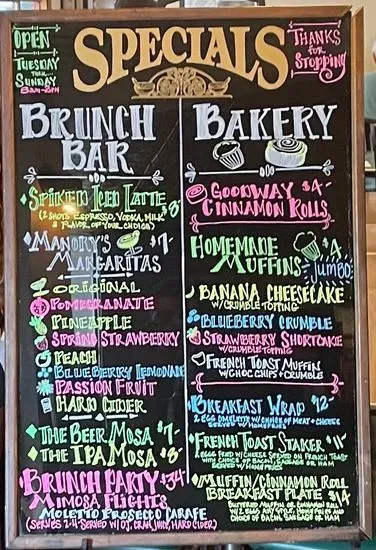 OPEN
TUESDAY
THRU
SUNDAY
8AM-2PM
SPECIALS
THANKS
FOR
STOPPING
BRUNCH
BAR
SPIKED ICED LATTE 8-
(2 SHOTS ESPRESSO, VODKA, MILK
& FLAVOR OF YOUR CHOICE)
MALLORY'S $7-
MARGARITAS
ORIGINAL
POMEGRANATE
PINEAPPLE
SPRING STRAWBERRY
PEACH
BLUEBERRY LEMONADE
PASSION FRUIT
HARD CIDER
THE BEER MOSA $7-
THE IPA MOSA $8-
BRUNCH PARTY $34-
MIMOSA FLIGHTS
MOLETTO PROSECCO CARAFE
(SERVES 2-4-SERVED W/OJ, CRAN JUICE, HARD CIDER)
BAKERY
GOODWAY $4-
CINNAMON ROLLS
HOMEMADE $4
MUFFINS JUMBO
BANANA CHEESECAKE
W/CRUMBLE TOPPING
BLUEBERRY CRUMBLE
STRAWBERRY SHORTCAKE
W/CRUMBLE TOPPING
FRENCH TOAST MUFFIN
W/CHOC CHIPS + CRUMBLE
BREAKFAST WRAP $12-
2 EGG OMELETTE W/CHOICE OF MEAT + CHEESE
SERVED W/HOMEFRIES
FRENCH TOAST STAKER $11-
2 EGGS FRIED W/CHEESE SERVED ON FRENCH TOAST
WITH CHOICE OF BACON, SAUSAGE OR HAM
SERVED W/HOMEFRIES
MUFFIN/CINNAMON ROLL
BREAKFAST PLATE $14
BUTTERED MUFFIN OR CINNAMON ROLL
W/2 EGGS ANY STYLE, HOME FRIES AND
CHOICE OF BACON, SAUSAGE OR HAM